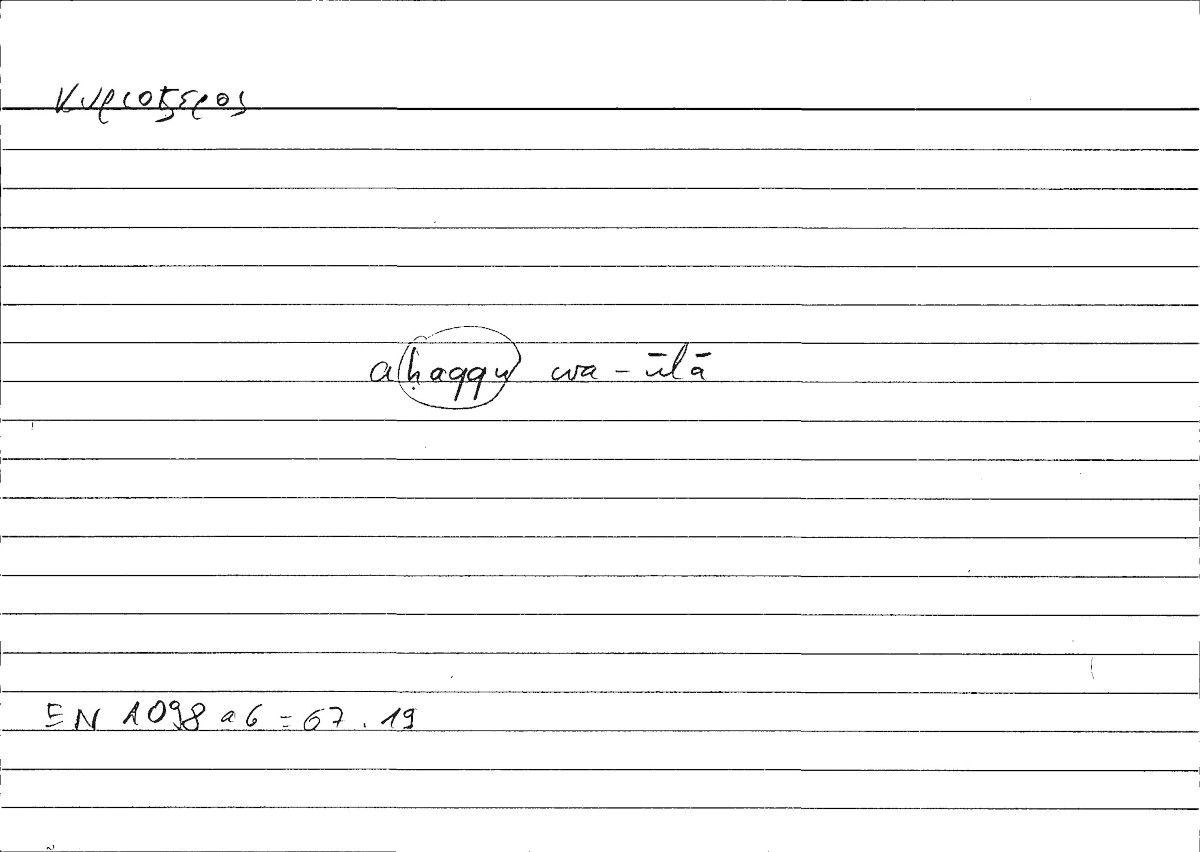 κυριοτερος
aḥaqqu wa-ūlā
EN 1098 a 6 = 67.19